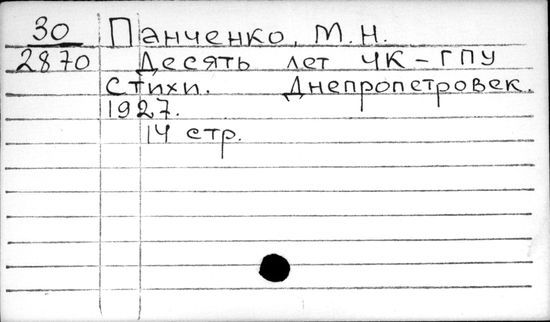 30 Панченко, М.Н.
2870 Десять лет ЧК-ГПУ
Стихи. Днепропетровск.
1927.
14 стр.